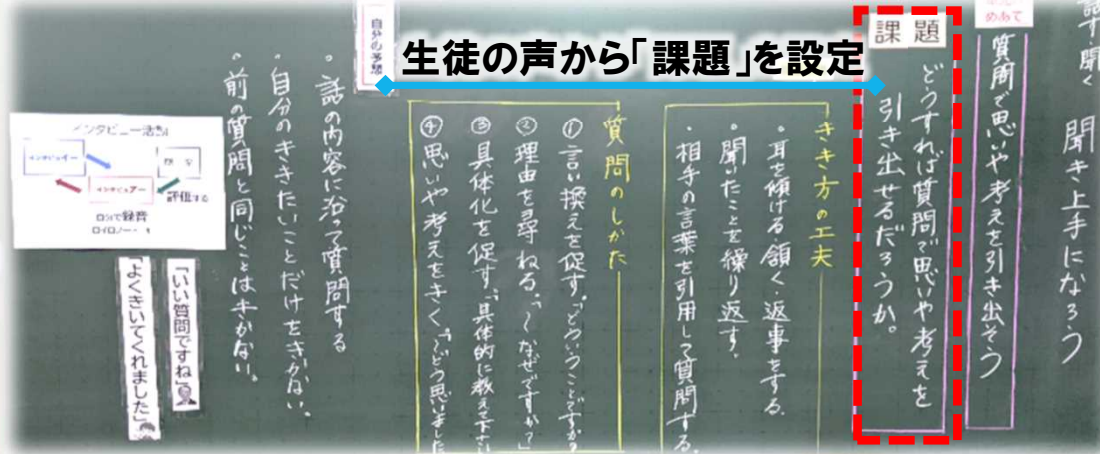 生徒の声から「課題」を設定
話す聞く 聞き上手になろう
めあて
質問で思いや考えを引き出そう
課題
どうすれば質問で思いや考えを
引き出せるだろうか。
きき方の工夫
・耳を傾ける 頷く 返事をする
・聞いたことを繰り返す。
・相手の言葉を引用して質問する。
質問のしかた
① 言い換えを促す。「どういうことですか
② 理由を尋ねる。「〜なぜですか?」
③ 具体化を促す。「具体的に教えて下さい
④ 思いや考えをきく。「どう思いました
自分の予想
・話の内容に沿って質問する
・自分のききたいことだけをきかない。
・前の質問と同じことはきかない。
「いい質問ですね」
「よくきいてくれました」
インタビュー活動
インタビュアー
評価する
ロイロノート